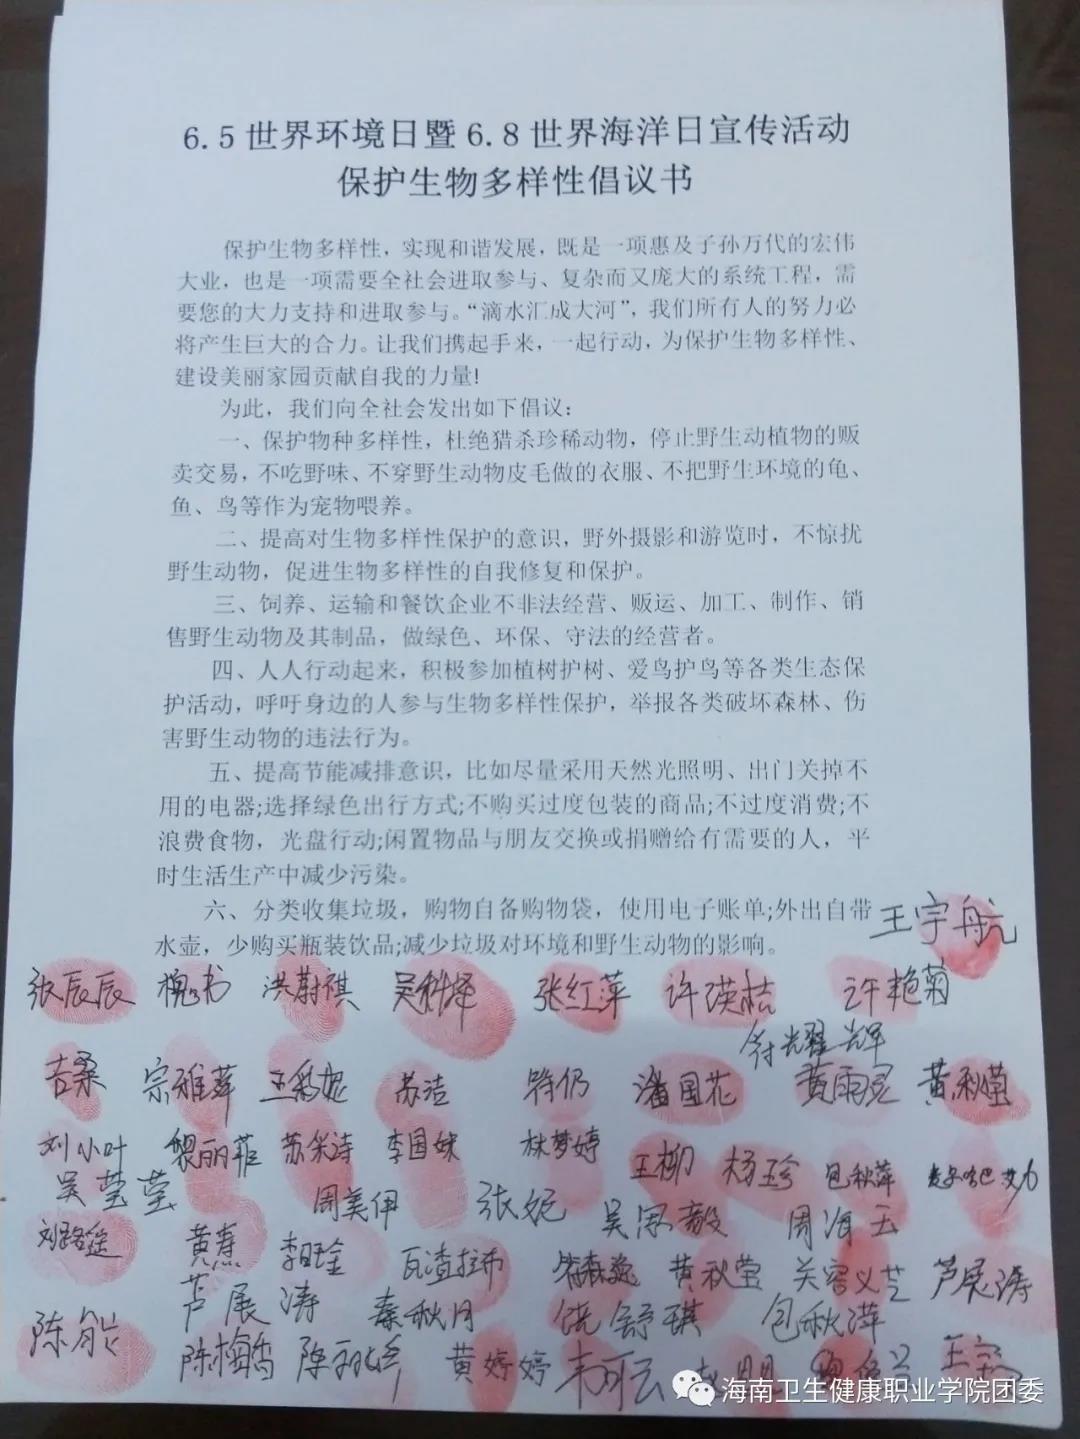 6.5世界环境日暨6.8世界海洋日宣传活动
保护生物多样性倡议书
保护生物多样性，实现和谐发展，既是一项惠及子孙万代的宏伟
大业，也是一项需要全社会进取参与、复杂而又庞大的系统工程，需
要您的大力支持和进取参与。“滴水汇成大河”，我们所有人的努力必
将产生巨大的合力。让我们携起手来，一起行动，为保护生物多样性、
建设美丽家园贡献自我的力量!
为此，我们向全社会发出如下倡议：
一、保护物种多样性，杜绝猎杀珍稀动物，停止野生动植物的贩
卖交易，不吃野味、不穿野生动物皮毛做的衣服、不把野生环境的龟、
鱼、鸟等作为宠物喂养。
二、提高对生物多样性保护的意识，野外摄影和游览时，不惊扰
野生动物，促进生物多样性的自我修复和保护。
三、饲养、运输和餐饮企业不非法经营、贩运、加工、制作、销
售野生动物及其制品，做绿色、环保、守法的经营者。
四、人人行动起来，积极参加植树护树、爱鸟护鸟等各类生态保
护活动，呼吁身边的人参与生物多样性保护，举报各类破坏森林、伤
害野生动物的违法行为。
五、提高节能减排意识，比如尽量采用天然光照明、出门关掉不
用的电器;选择绿色出行方式;不购买过度包装的商品;不过度消费;不
浪费食物，光盘行动;闲置物品与朋友交换或捐赠给有需要的人，平
时生活生产中减少污染。
六、分类收集垃圾，购物自备购物袋，使用电子账单;外出自带
水壶，少购买瓶装饮品;减少垃圾对环境和野生动物的影响。
王宇航
张辰辰 洪蔚祺 吴科泽 张红萍 许瑛桔 许艳菊
符耀辉
吉桑 宗雅萍 王彩妮 苏洁 符仍 潘国花 黄雨灵 黄秋莹
刘小叶 黎丽菲 苏采诗 李国妹 林梦婷 王柳 杨珍 包秋萍
吴莹莹 周美伊 张妮 吴思毅 周海玉
刘路莲 黄焘 瓦渣拉布 黄秋莹 关客义芝 芦展涛
芦展涛 秦秋月 饶舒琪 包秋萍
陈能 陈梅香 黄婷婷 韦可云
海南卫生健康职业学院团委